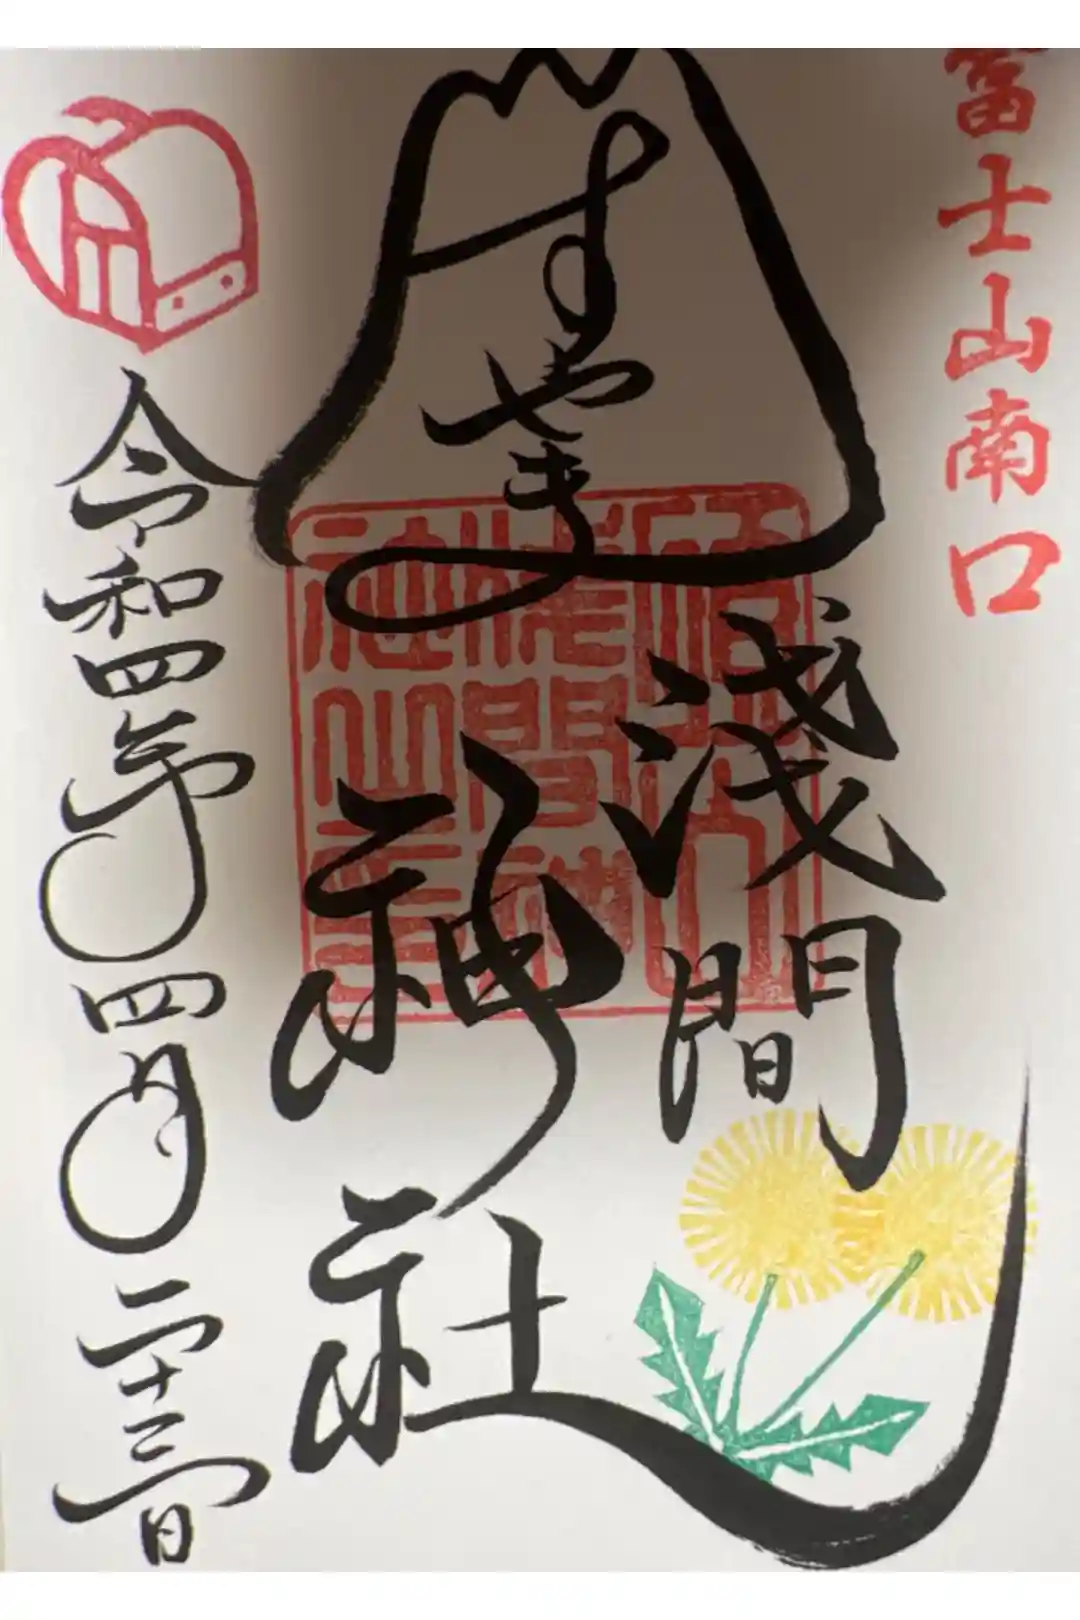 富士山南口
すやま
淺間
神社
令和四年四月二十三日